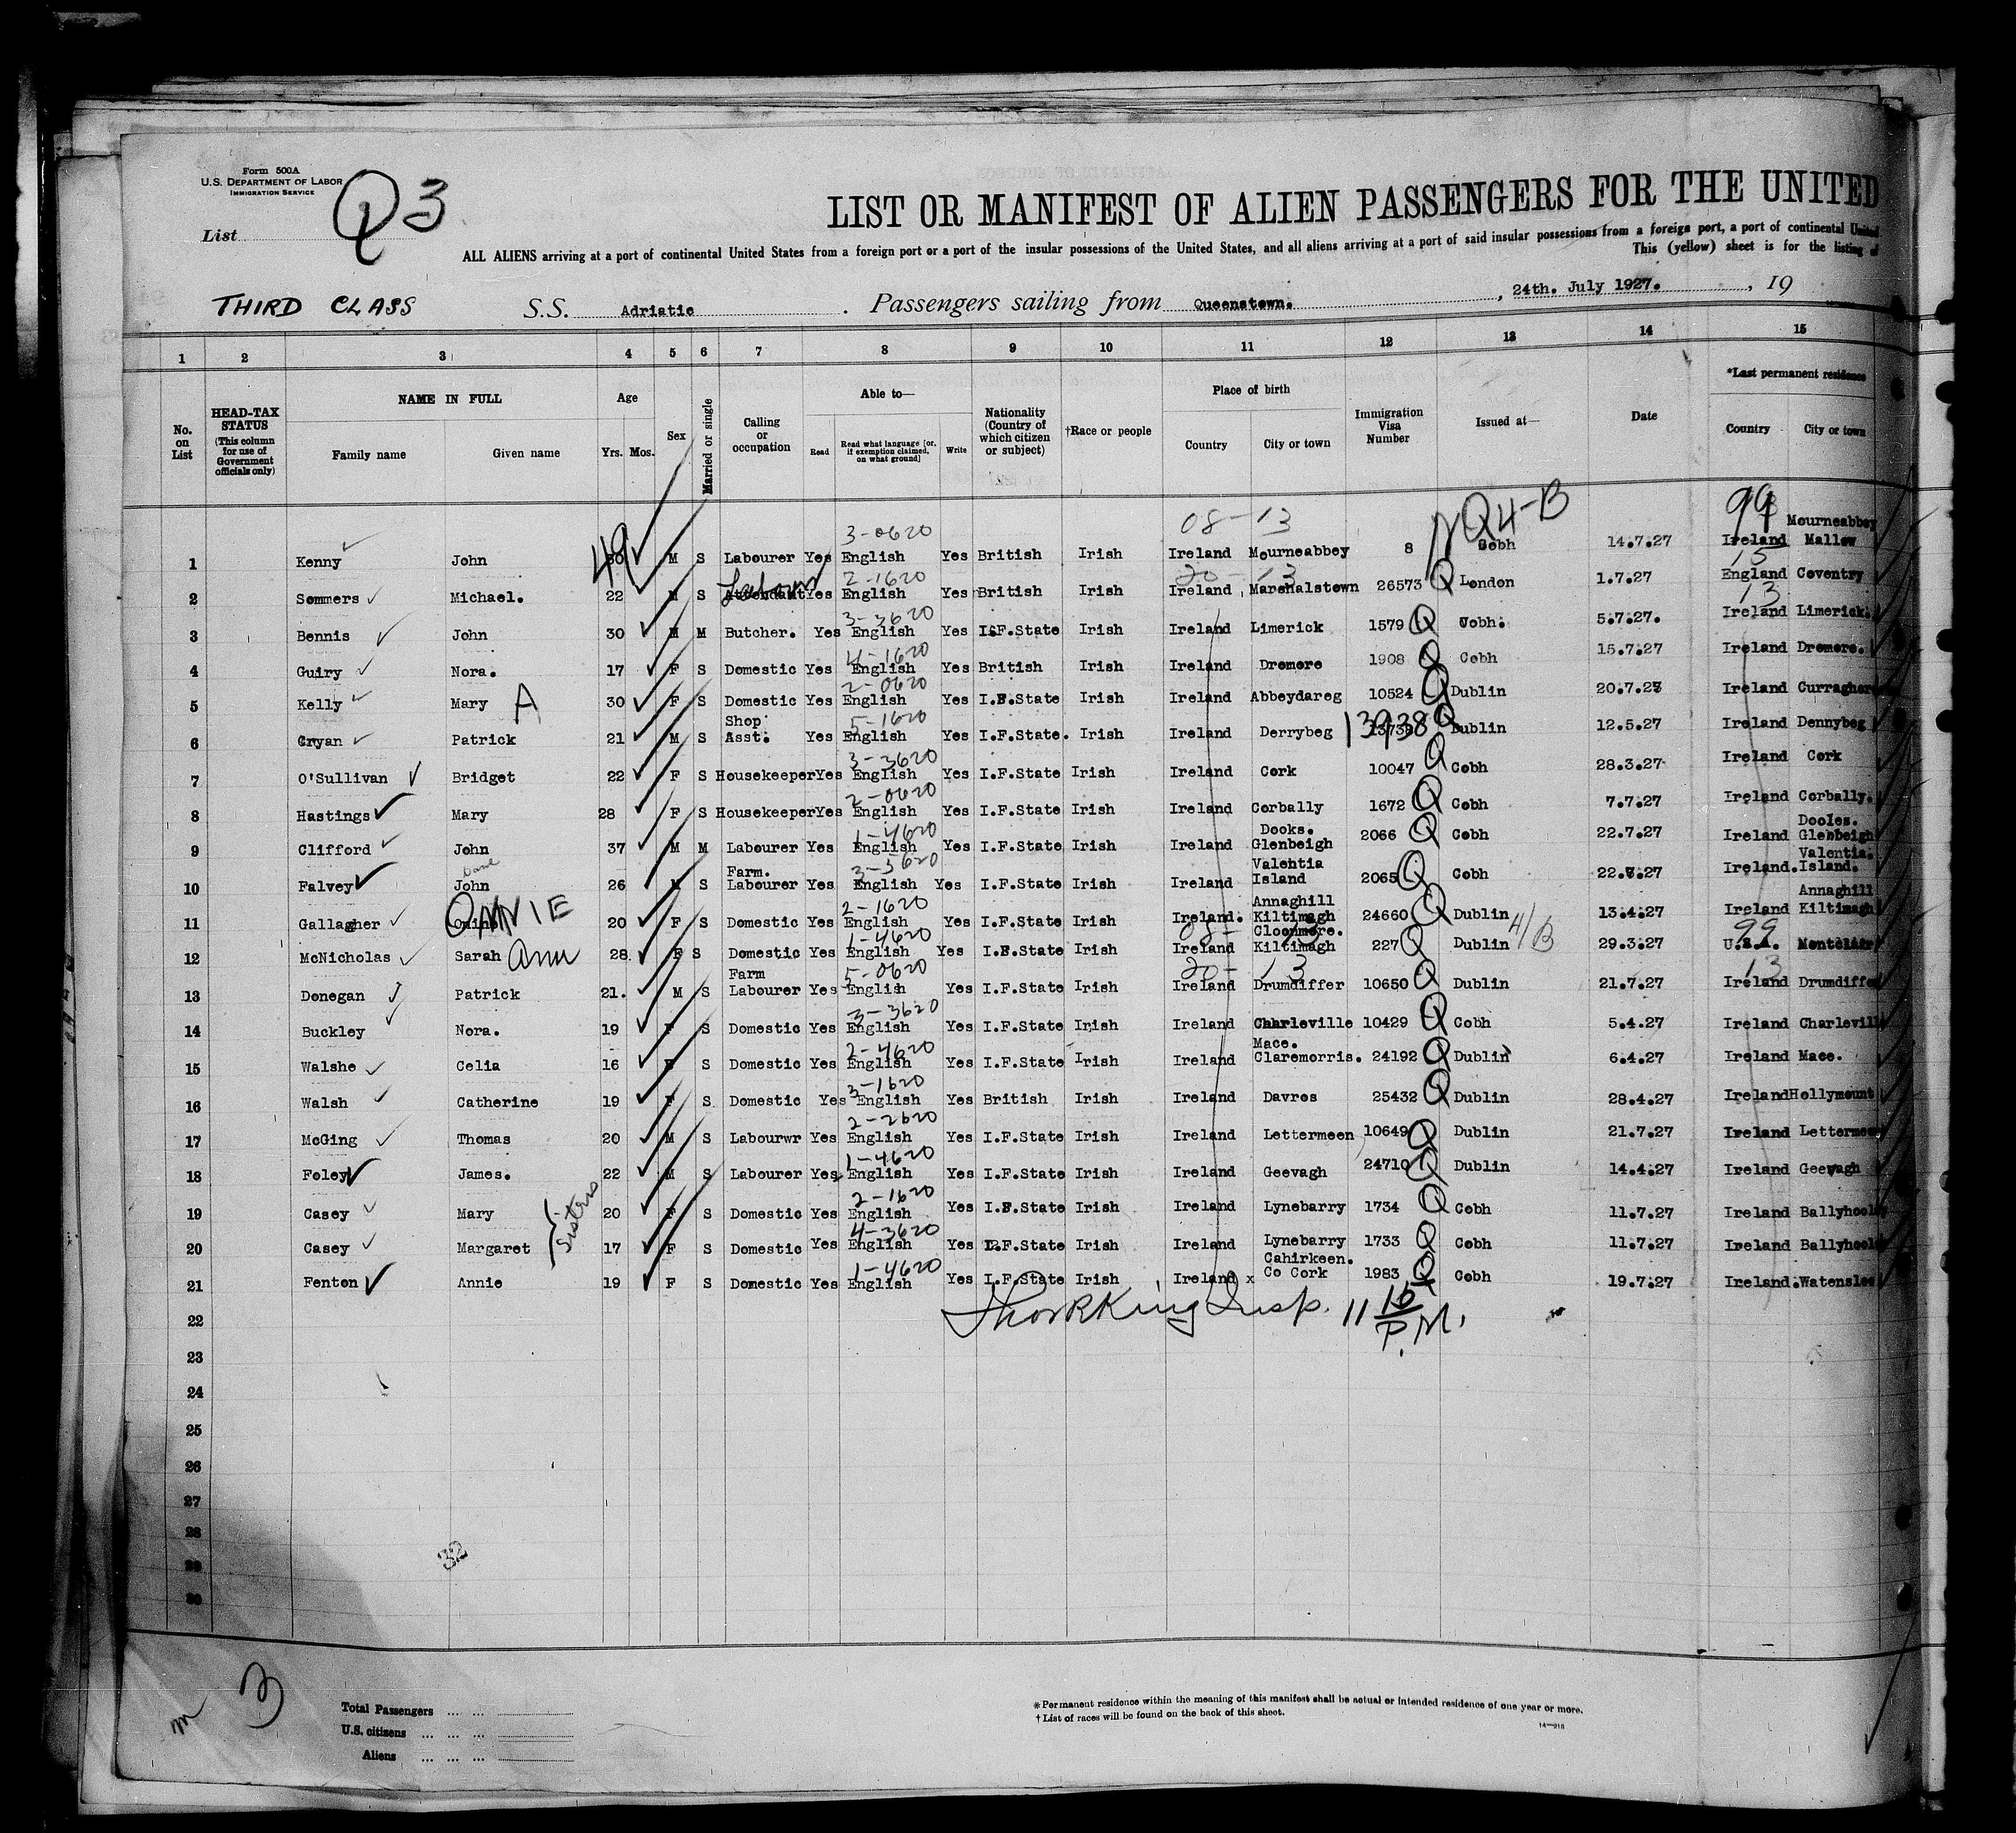 Form 500A
U.S. DEPARTMENT OF LABOR
IMMIGRATION SERVICE
Q 3
List
LIST OR MANIFEST OF ALIEN PASSENGERS FOR THE UNITED
ALL ALIENS arriving at a port of continental United States from a foreign port or a port of the insular possessions of the United States, and all aliens arriving at a port of said insular possessions from a foreign port, a port of continental United
This (yellow) sheet is for the listing of
THIRD CLASS S.S. Adriatic . Passengers sailing from Queenstown. , 24th. July 1927. , 19
1 2 3 4 5 6 7 8 9 10 11 12 13 14 15
No. on List
HEAD-TAX STATUS (This column for use of Government officials only)
NAME IN FULL
Family name Given name
Age
Yrs. Mos.
Sex
Married or single
Calling or occupation
Able to—
Read Read what language [or, if exemption claimed, on what ground] Write
Nationality (Country of which citizen or subject)
†Race or people
Place of birth
Country City or town
Immigration Visa Number
Issued at—
Date
*Last permanent residence
Country City or town
3-0620 08-13 Q4-B 99 Mourneabbey
1 Kenny John 49 M S Labourer Yes English Yes British Irish Ireland Mourneabbey 8 Cobh 14.7.27 Ireland Mallow
2-1620 20-13 15
2 Sommers Michael. 22 M S Yes English Yes British Irish Ireland Marshalstown 26573 Q London 1.7.27 England Coventry
3-3620 13
3 Bennis John 30 M M Butcher. Yes English Yes I.F.State Irish Ireland Limerick 1579 Q Cobh. 5.7.27. Ireland Limerick.
4-1620
4 Guiry Nora. 17 F S Domestic Yes English Yes British Irish Ireland Dromore 1908 Q Cobh 15.7.27 Ireland Dromore.
2-0620
5 Kelly Mary A 30 F S Domestic Yes English Yes I.F.State Irish Ireland Abbeydareg 10524 Q Dublin 20.7.27 Ireland
Shop 5-1620
6 Cryan Patrick 21 M S Asst. Yes English Yes I.F.State. Irish Ireland Derrybeg 13938 Q Dublin 12.5.27 Ireland Dennybeg
3-3620
7 O'Sullivan Bridget 22 F S Housekeeper Yes English Yes I.F.State Irish Ireland Cork 10047 Q Cobh 28.3.27 Ireland Cork
2-0620
8 Hastings Mary 28 F S Housekeeper Yes English Yes I.F.State Irish Ireland Corbally 1672 Q Cobh 7.7.27 Ireland Corbally.
1-4620 Dooks. Dooles.
9 Clifford John 37 M M Labourer Yes English Yes I.F.State Irish Ireland Glenbeigh 2066 Q Cobh 22.7.27 Ireland Glenbeigh
Farm. 3-3620 Valentia Valentia.
10 Falvey John 26 M S Labourer Yes English Yes I.F.State Irish Ireland Island 2065 Q Cobh 22.7.27 Ireland. Island.
2-1620 Annaghill Annaghill
11 Gallagher ANNIE 20 F S Domestic Yes English Yes I.F.State Irish Ireland. Kiltimagh 24660 Q Dublin 13.4.27 Ireland Kiltimagh
1-4620 08- Cloonmore. 4/B 99
12 McNicholas Sarah Ann 28. F S Domestic Yes English Yes I.F.State Irish Ireland Kiltimagh 227 Q Dublin 29.3.27 U.S.A. Montclair
Farm 5-0620 20-13 13
13 Donegan Patrick 21. M S Labourer Yes English Yes I.F.State Irish Ireland Drumdiffer 10650 Q Dublin 21.7.27 Ireland Drumdiffer
3-3620
14 Buckley Nora. 19 F S Domestic Yes English Yes I.F.State Irish Ireland Charleville 10429 Q Cobh 5.4.27 Ireland Charleville
2-4620 Mace.
15 Walshe Celia 16 F S Domestic Yes English Yes I.F.State Irish Ireland Claremorris. 24192 Q Dublin 6.4.27 Ireland Mace.
3-1620
16 Walsh Catherine 19 F S Domestic Yes English Yes British Irish Ireland Davros 25432 Q Dublin 28.4.27 Ireland Hollymount
2-2620
17 McGing Thomas 20 M S Labourwr Yes English Yes I.F.State Irish Ireland Lettermeen 10649 Q Dublin 21.7.27 Ireland Lettermeen
1-4620
18 Foley James. 22 M S Labourer Yes English Yes I.F.State Irish Ireland Geevagh 24710 Q Dublin 14.4.27 Ireland Geevagh
2-1620
19 Casey Mary Sisters 20 F S Domestic Yes English Yes I.F.State Irish Ireland Lynebarry 1734 Q Cobh 11.7.27 Ireland
4-3620
20 Casey Margaret 17 F S Domestic Yes English Yes I.F.State Irish Ireland Lynebarry 1733 Q Cobh 11.7.27 Ireland
1-4620 Cahirkeen.
21 Fenton Annie 19 F S Domestic Yes English Yes I.F.State Irish Ireland x Co Cork 1983 Q Cobh 19.7.27 Ireland.
22 King Insp. 11 15 P.M.
23
24
25
26
27
28
29
30
32
m 3
Total Passengers ... ...
U.S. citizens ... ... ...
Aliens ... ... ...
* Permanent residence within the meaning of this manifest shall be actual or intended residence of one year or more.
† List of races will be found on the back of this sheet.